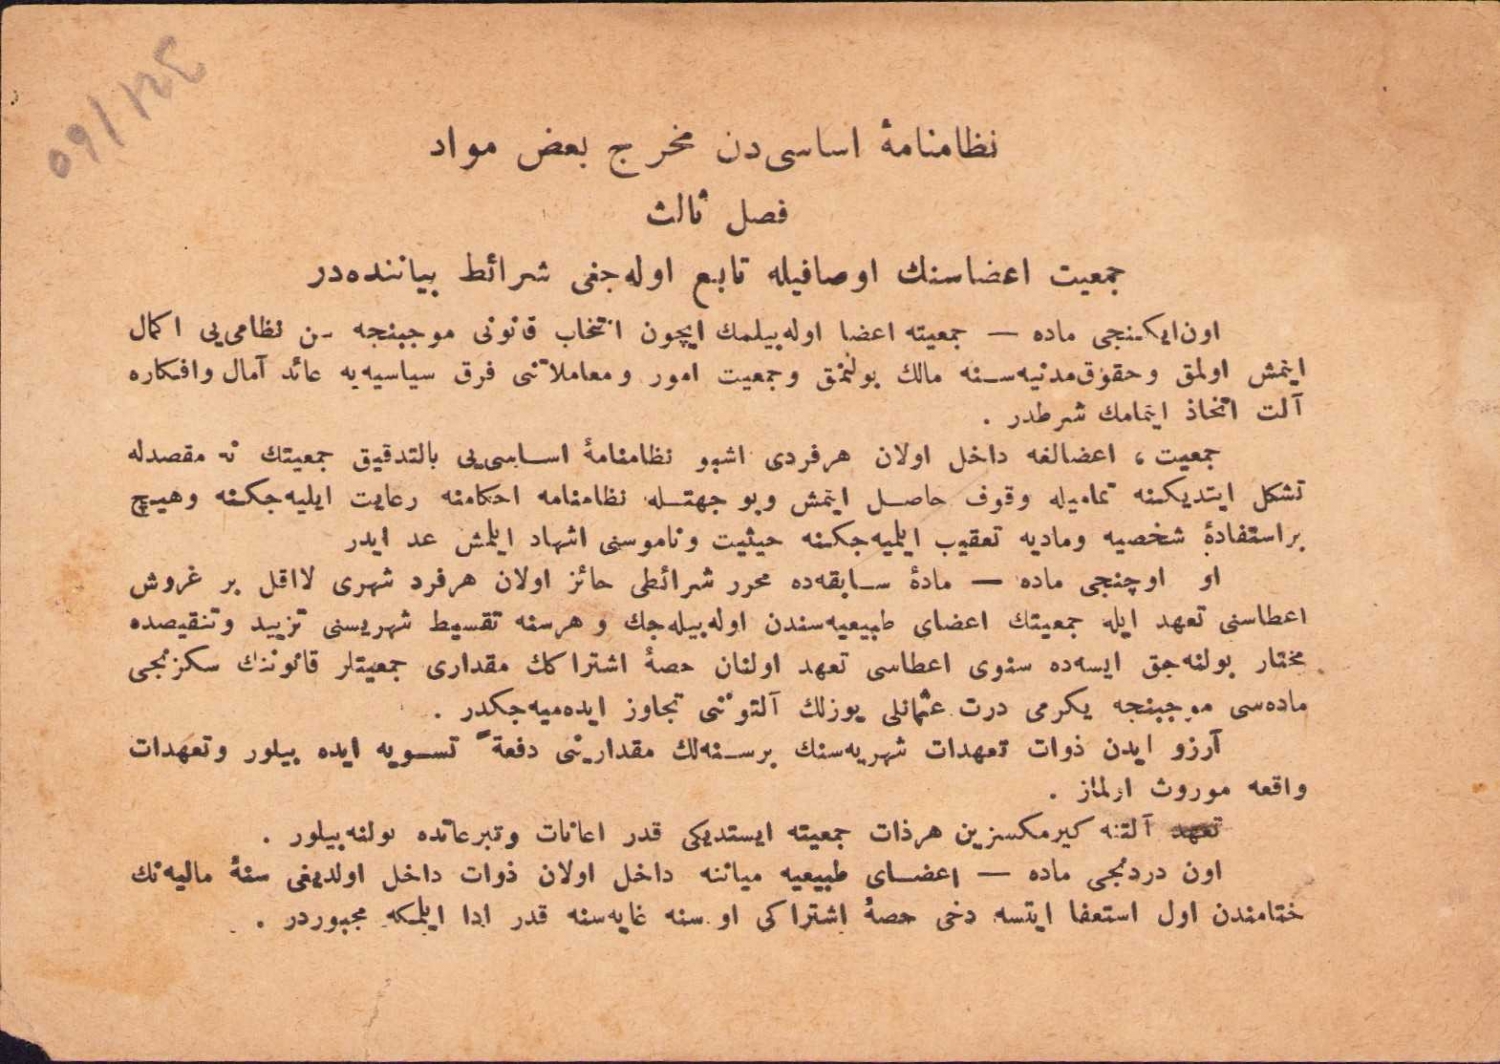 نظامنامهٔ اساسی‌دن مخرج بعض مواد
فصل ثالث
جمعیت اعضاسنك اوصافیله تابع اوله‌جغی شرائط بیاننده‌در
اون‌ایكنجی ماده — جمعیته اعضا اوله‌بیلمك ایچون انتخاب قانونی موجبنجه سن نظامی‌یی اكمال
ایتمش اولمق وحقوق‌مدنیه‌سنه مالك بولنمق وجمعیت امور ومعاملاتنی فرق سیاسیه‌یه عائد آمال وافكاره
آلت اتخاذ ایتمامك شرطدر .
جمعیت ، اعضالغه داخل اولان هرفردی اشبو نظامنامهٔ اساسی‌یی بالتدقیق جمعیتك نه مقصدله
تشكل ایتدیكنه تمامیله وقوف حاصل ایتمش وبو جهتله نظامنامه احكامنه رعایت ایلیه‌جكنه وهیچ
براستفادهٔ شخصیه ومادیه تعقیب ایلمیه‌جكنه حیثیت وناموسنی اشهاد ایلمش عد ایدر
او اوچنجی ماده — مادهٔ سابقه‌ده محرر شرائطی حائز اولان هرفرد شهری لااقل بر غروش
اعطاسنی تعهد ایله جمعیتك اعضای طبیعیه‌سندن اوله‌بیله‌جك و هرسنه تقسیط شهریسنی تزیید وتنقیصده
مختار بولنه‌جق ایسه‌ده سنوی اعطاسی تعهد اولنان حصهٔ اشتراكك مقداری جمعیتلر قانوننك سكزنجی
ماده‌سی موجبنجه یكرمی درت عثمانلی یوزلك آلتوننی تجاوز ایده‌میه‌جكدر .
آرزو ایدن ذوات تعهدات شهریه‌سنك برسنه‌لك مقدارینی دفعةً تسویه ایده بیلور وتعهدات
واقعه موروث اولماز .
تعهد آلتنه كیرمكسزین هرذات جمعیته ایستدیكی قدر اعانات وتبرعاتده بولنه‌بیلور .
اون دردنجی ماده — اعضای طبیعیه میاننه داخل اولان ذوات داخل اولدیغی سنهٔ مالیه‌نك
ختامندن اول استعفا ایتسه دخی حصهٔ اشتراكی او سنه غایه‌سنه قدر ادا ایلمكه مجبوردر .